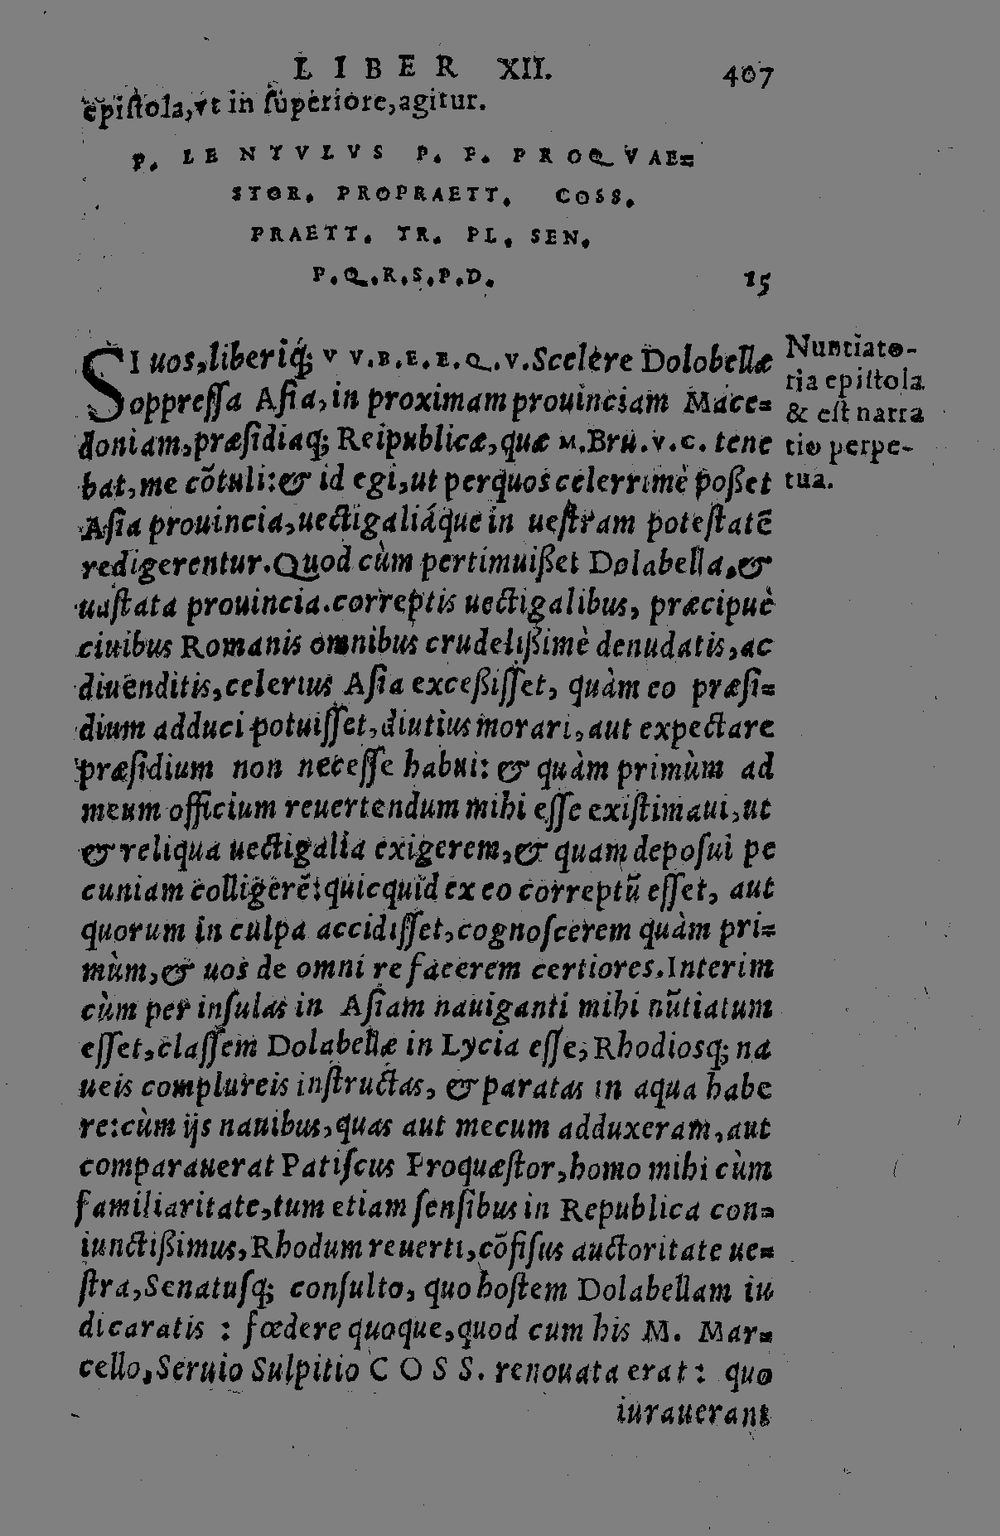 LIBER XII. 407
epistola, vt in superiore, agitur.
P. LENTVLVS P. F. PROQVAE=
STOR. PROPRAETT. COSS.
PRAETT. TR. PL. SEN.
P.Q.R.S.P.D. 15
SI uos, liberiq; V V.B.E.E.Q.V. Scelere Dolobellæ
oppressa Asia, in proximam prouinciam Mace=
doniam, præsidiaq; Reipublicæ, quæ M. Bru. v. c. tene
bat, me cõtuli: & id egi, ut per quos celerrimè poßet
Asia prouincia, uectigaliáque in uestram potestatẽ
redigerentur. Quod cùm pertimuißet Dolabella, &
uastata prouincia. correptis uectigalibus, præcipuè
ciuibus Romanis omnibus crudelißimè denudatis, ac
diuenditis, celerius Asia exceßisset, quàm eo præsi=
dium adduci potuisset, diutius morari, aut expectare
præsidium non necesse habui: & quàm primùm ad
meum officium reuertendum mihi esse existimaui, ut
& reliqua uectigalia exigerem, & quam deposui pe
cuniam colligerẽ: quicquid ex eo correptũ esset, aut
quorum in culpa accidisset, cognoscerem quàm pri=
mùm, & uos de omni re facerem certiores. Interim
cùm per insulas in Asiam nauiganti mihi nũtiatum
esset, classem Dolabellæ in Lycia esse, Rhodiosq; na
ueis complureis instructas, & paratas in aqua habe
re: cùm ijs nauibus, quas aut mecum adduxeram, aut
comparauerat Patiscus Proquæstor, homo mihi cùm
familiaritate, tum etiam sensibus in Republica con=
iunctißimus, Rhodum reuerti, cõfisus auctoritate ue=
stra, Senatusq; consulto, quo hostem Dolabellam iu
dicaratis : fœdere quoque, quod cum his M. Mar=
cello, Seruio Sulpitio COSS. renouata erat: quo
iurauerant
Nuntiato-
ria epistola
& est narra
tio perpe-
tua.